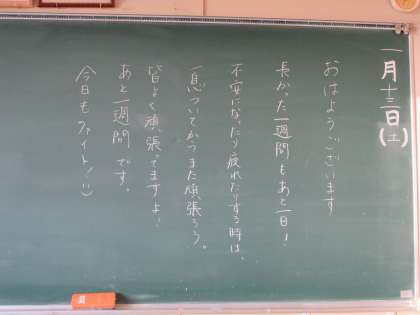 一月十三日(土)
おはようございます
長かった一週間もあと一日!
不安になったり疲れたりする時は、
一息ついてからまた頑張ろう。
皆よく頑張ってますよ!
あと一週間です。
今日もファイト!:)